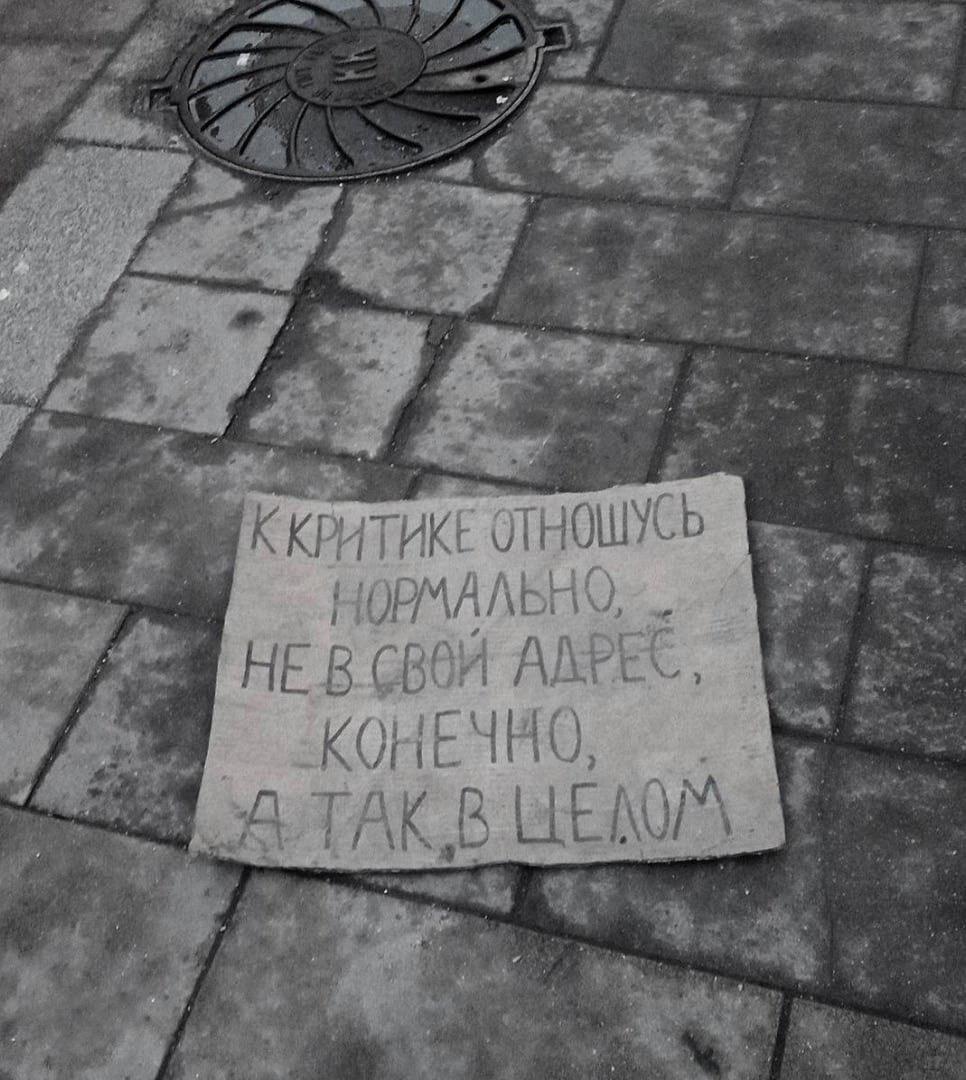 К КРИТИКЕ ОТНОШУСЬ
НОРМАЛЬНО,
НЕ В СВОЙ АДРЕС,
КОНЕЧНО,
А ТАК, В ЦЕЛОМ